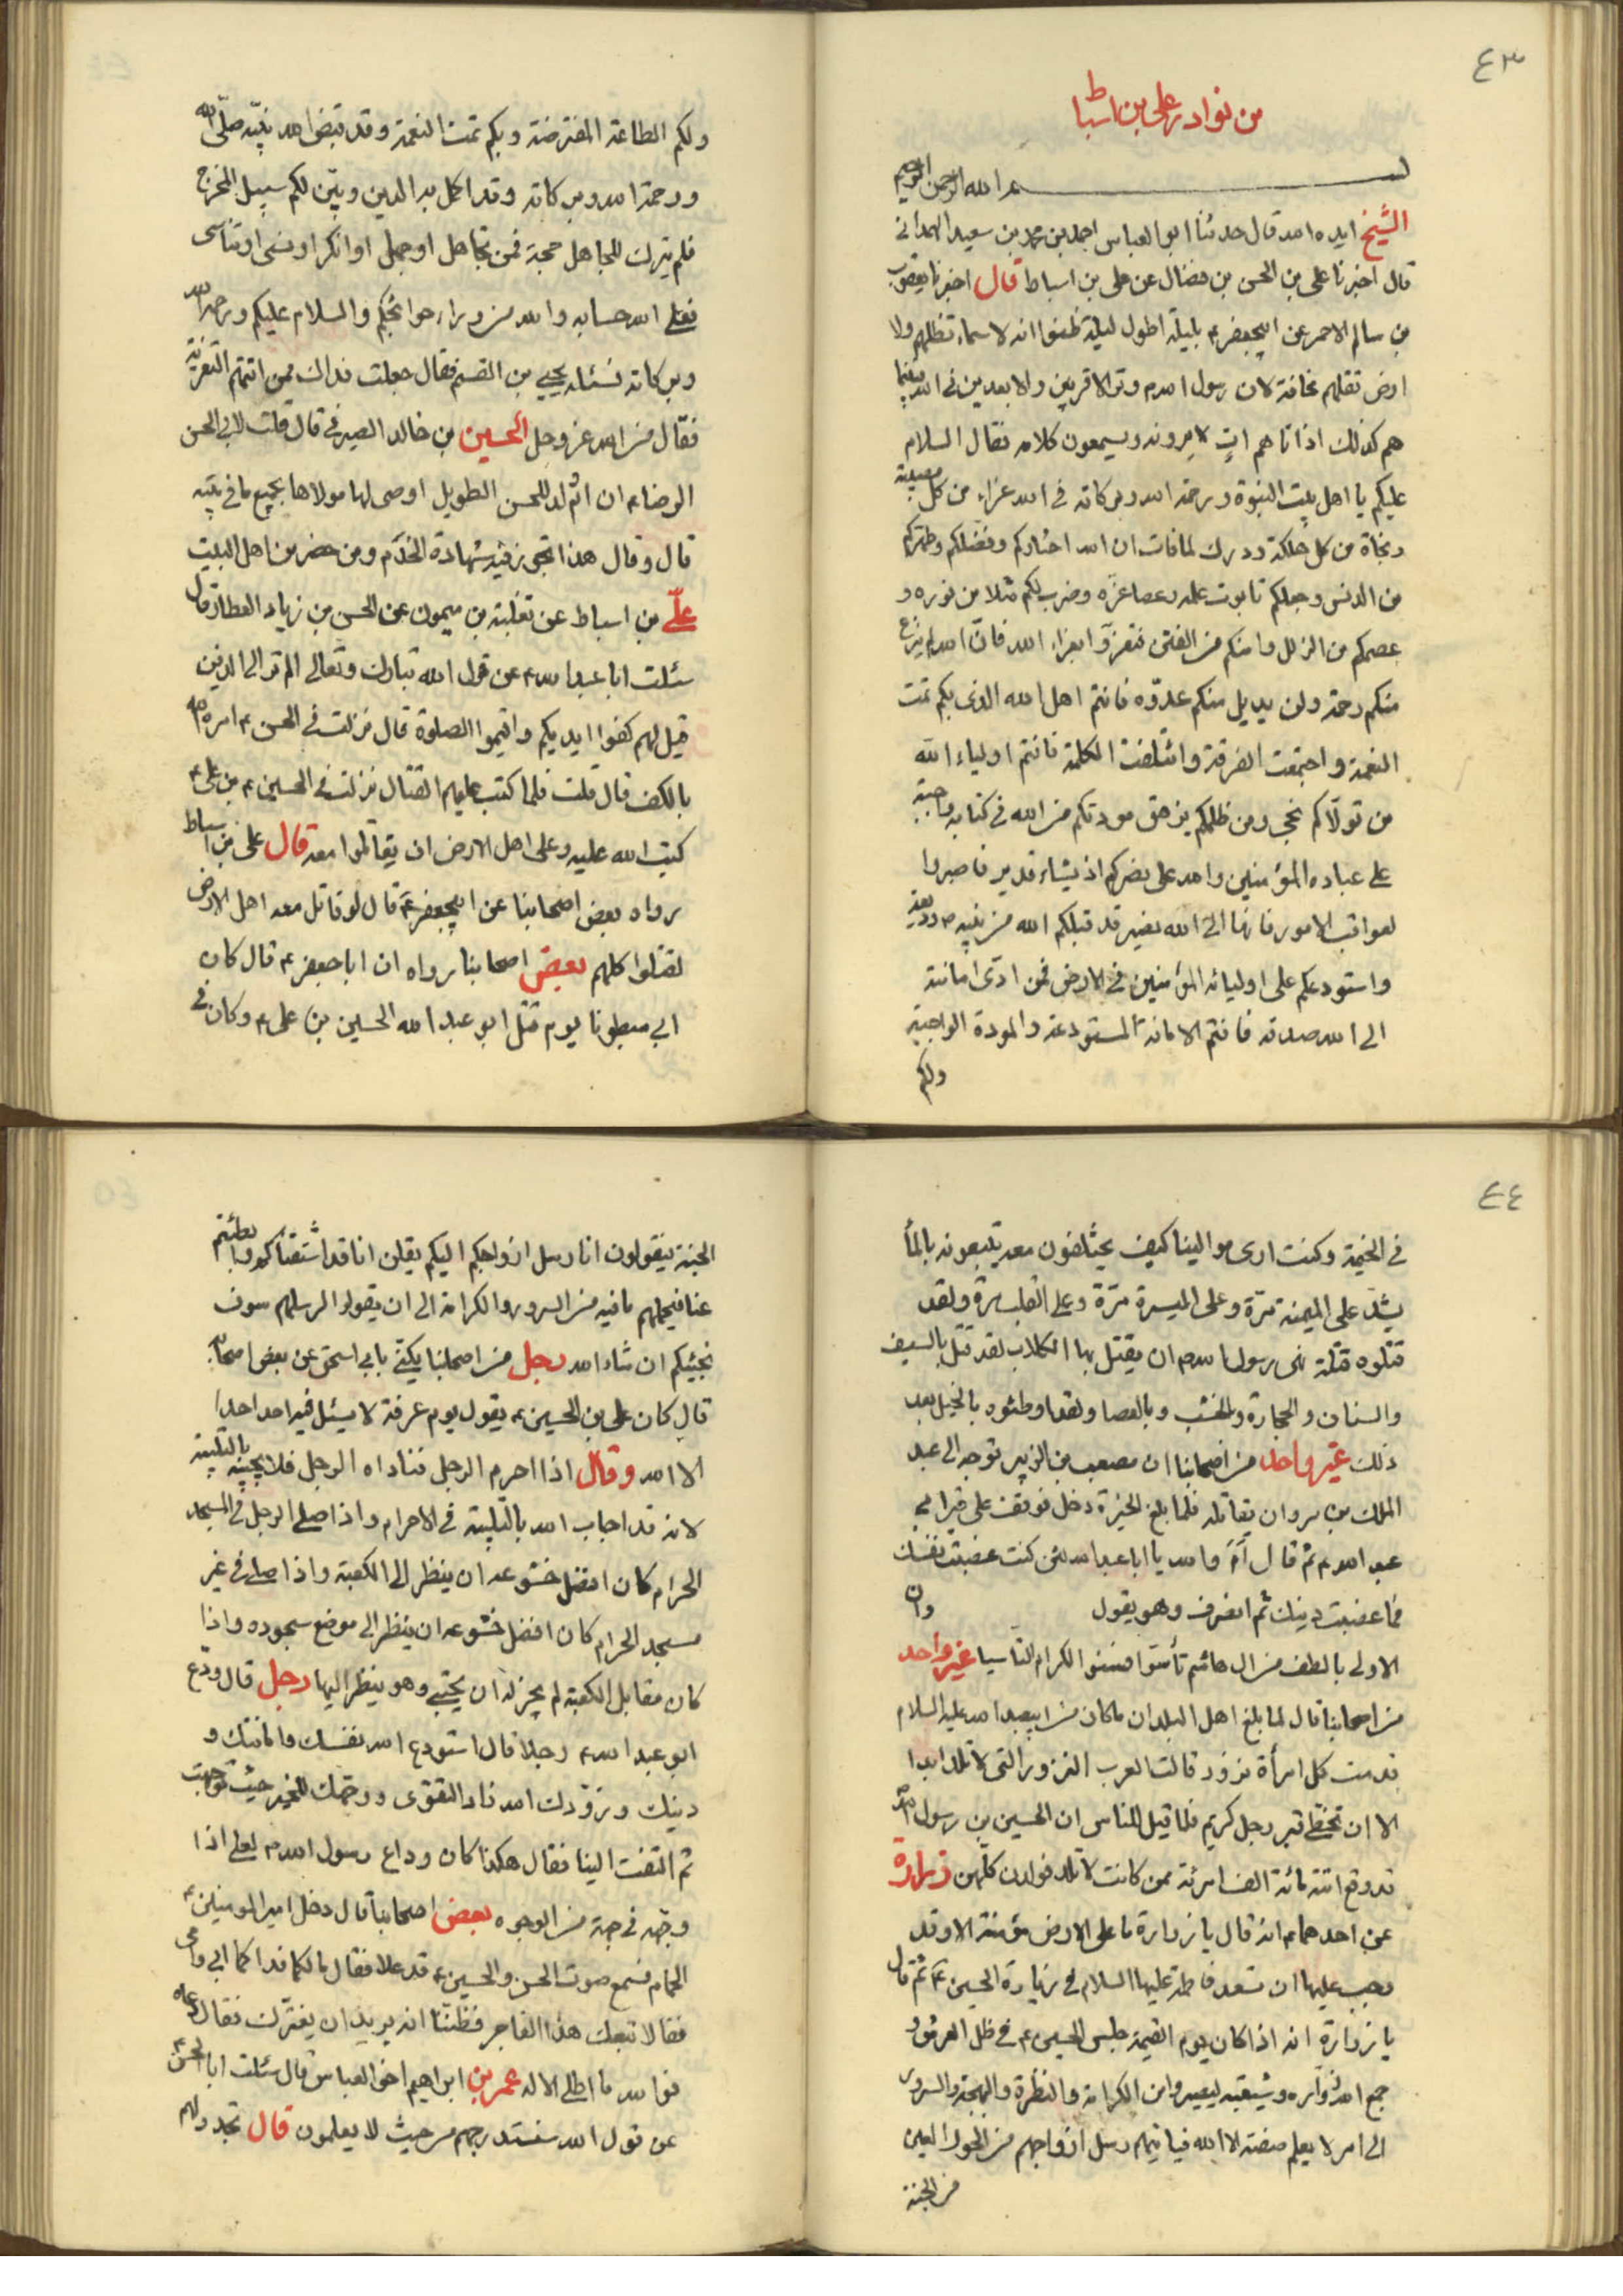 ٤٣
من نوادر علي بن اسباط
بسم الله الرحمن الرحيم
الشيخ ايده الله قال حدثنا ابو العباس احمد بن محمد بن سعيد الهمداني
قال اخبرنا علي بن الحسن بن فضال عن علي بن اسباط قال اخبرنا يعقوب
بن سالم الاحمر عن ابيجعفر ع بليلة اطول ليلة ظنوا انه لا سماء تظلهم ولا
ارض تقلهم مخافة لان رسول الله ص وتر الاقربين والابعدين في الله فبينما
هم كذلك اذ اتاهم ات لا يرونه ويسمعون كلامه فقال السلام
عليكم يا اهل بيت النبوة ورحمة الله وبركاته في الله عزاء من كل مصيبة
ونجاة من كل هلكة ودرك لما فات ان الله اختاركم وفضلكم وطهركم
من الدنس وجعلكم تابوت علمه وعصا عزه وضرب لكم مثلا من نوره و
عصمكم من الزلل وامنكم من الفتن فتعزوا بعزاء الله فان الله لم ينزع
منكم رحمة ولن يديل منكم عدوه فانتم اهل الله الذى بكم تمت
النعمة واجتمعت الفرقة وائتلفت الكلمة فانتم اولياء الله
من تولاكم نجى ومن ظلمكم يزهق مودتكم من الله في كتابه واجبة
على عباده المؤمنين والله على نصركم اذ يشاء قدير فاصبروا
لعواقب الامور فانها الى الله تصير قد قبلكم الله من نبيه ص وديعة
واستودعكم على اوليائه المؤمنين في الارض فمن ادى امانته
الى الله صدقه فانتم الامانة المستودعة والمودة الواجبة
ولكم
ولكم الطاعة المفترضة وبكم تمت النعمة وقد قبض الله نبيه صلى الله
ورحمة الله وبركاته وقد اكمل به الدين وبين لكم سبيل المخرج
فلم يترك للجاهل حجة فمن تجاهل او جهل او انكر او نسى او تناسى
فعلى الله حسابه والله من وراء حوائجكم والسلام عليكم ورحمة الله
وبركاته فسئله يحيى بن القسم فقال جعلت فداك ممن اتتهم التعزية
فقال من الله عز وجل الحسين بن خالد الصيرفي قال قلت لابي الحسن
الرضا ع ان ام ولد للحسن الطويل اوصى لها مولاها بجميع ما في بيته
قال وقال هذا تجوز فيه شهادة الخدم ومن حضر من اهل البيت
علي بن اسباط عن ثعلبة بن ميمون عن الحسن بن زياد العطار قال
سئلت ابا عبد الله ع عن قول الله تبارك وتعالى الم تر الى الذين
قيل لهم كفوا ايديكم واقيموا الصلوة قال نزلت في الحسن ع امره الله
بالكف قال قلت فلما كتب عليهم القتال نزلت في الحسين ع بن علي ع
كتب الله عليه وعلى اهل الارض ان يقاتلوا معه قال علي بن اسباط
رواه بعض اصحابنا عن ابيجعفر ع قال لو قاتل معه اهل الارض
لقتلوا كلهم بعض اصحابنا رواه ان ابا جعفر ع قال كان
ابي مبطونا يوم قتل ابو عبد الله الحسين بن علي ع وكان في
٤٤
في الخيمة وكنت ارى موالينا كيف يختلفون معه يتبعونه بالماء
يشد على الميمنة مرة وعلى الميسرة مرة وعلى القلب مرة ولقد
قتلوه قتلة نهى رسول الله ص ان يقتل بها الكلاب لقد قتل بالسيف
والسنان والحجارة والخشب وبالعصا ولقد اوطئوه بالخيل بعد
ذلك غير واحد من اصحابنا ان مصعب بن الزبير توجه الى عبد
الملك بن مروان يقاتله فلما بلغ الحيرة دخل فوقف على قبر ابي
عبد الله ع ثم قال اما والله يا ابا عبد الله لئن كنت غصبت نفسك
فما غصبت دينك ثم انصرف وهو يقول وان
الاولى بالطف من ال هاشم تأسوا فسنوا الكرام التاسيا غير واحد
من اصحابنا قال لما بلغ اهل البلدان ما كان من ابيعبد الله عليه السلام
قدمت كل امرأة نزور قالت العرب النزور التى لا تلد ابدا
الا ان تخطى قبر رجل كريم فلما قيل للناس ان الحسين بن رسول الله
قد وقع اتته مائة الف امرئة ممن كانت لا تلد فولدن كلهن زرارة
عن احدهما ع انه قال يا زرارة ما على الارض مؤمنة الا وقد
وجب عليها ان تسعد فاطمة عليها السلام في زيارة الحسين ع ثم قال
يا زرارة انه اذا كان يوم القيمة جلس الحسين ع في ظل العرش و
جمع الله زواره وشيعته ليصيروا من الكرامة والنظرة والبهجة والسرور
الى امر لا يعلم صفته الا الله فياتيهم رسل ازواجهم من الحور العين
من الجنة
الجنة فيقولون انا رسل ازواجكم اليكم يقلن انا قد اشتقناكم وابطئتم
عنا فيحملهم ما فيه من السرور والكرامة الى ان يقولوا لرسلهم سوف
نجيئكم ان شاء الله رجل من اصحابنا يكنى بابي اسحق عن بعض اصحابه
قال كان علي بن الحسين ع يقول يوم عرفة لا يسئل فيه احد احدا
الا الله وقال اذا احرم الرجل فناداه الرجل فلا يجيبه بالتلبية
لانه قد اجاب الله بالتلبية في الاحرام واذا صلى الرجل في المسجد
الحرام كان افضل خشوعه ان ينظر الى الكعبة واذا صلى في غير
مسجد الحرام كان افضل خشوعه ان ينظر الى موضع سجوده واذا
كان مقابل الكعبة لم يجز له ان يحتبى وهو ينظر اليها رجل قال ودع
ابو عبد الله ع رجلا قال استودع الله نفسك وامانتك و
دينك وزودك الله زاد التقوى ووجهك للخير حيث توجهت
ثم التفت الينا فقال هكذا كان وداع رسول الله ص لعلى اذا
وجهه في جهة من الوجوه بعض اصحابنا قال دخل امير المومنين ع
الحمام فسمع صوت الحسن والحسين ع قد علا فقال ما لكما فداكما ابي وامي
فقالا تبعك هذا الفاجر فظننا انه يريد ان يضرك فقال دعاه
فوالله ما اطلى الا له عمر بن ابراهيم اخى العباس قال سئلت ابا الحسن ع
عن قول الله سنستدرجهم من حيث لا يعلمون قال تجدد لهم